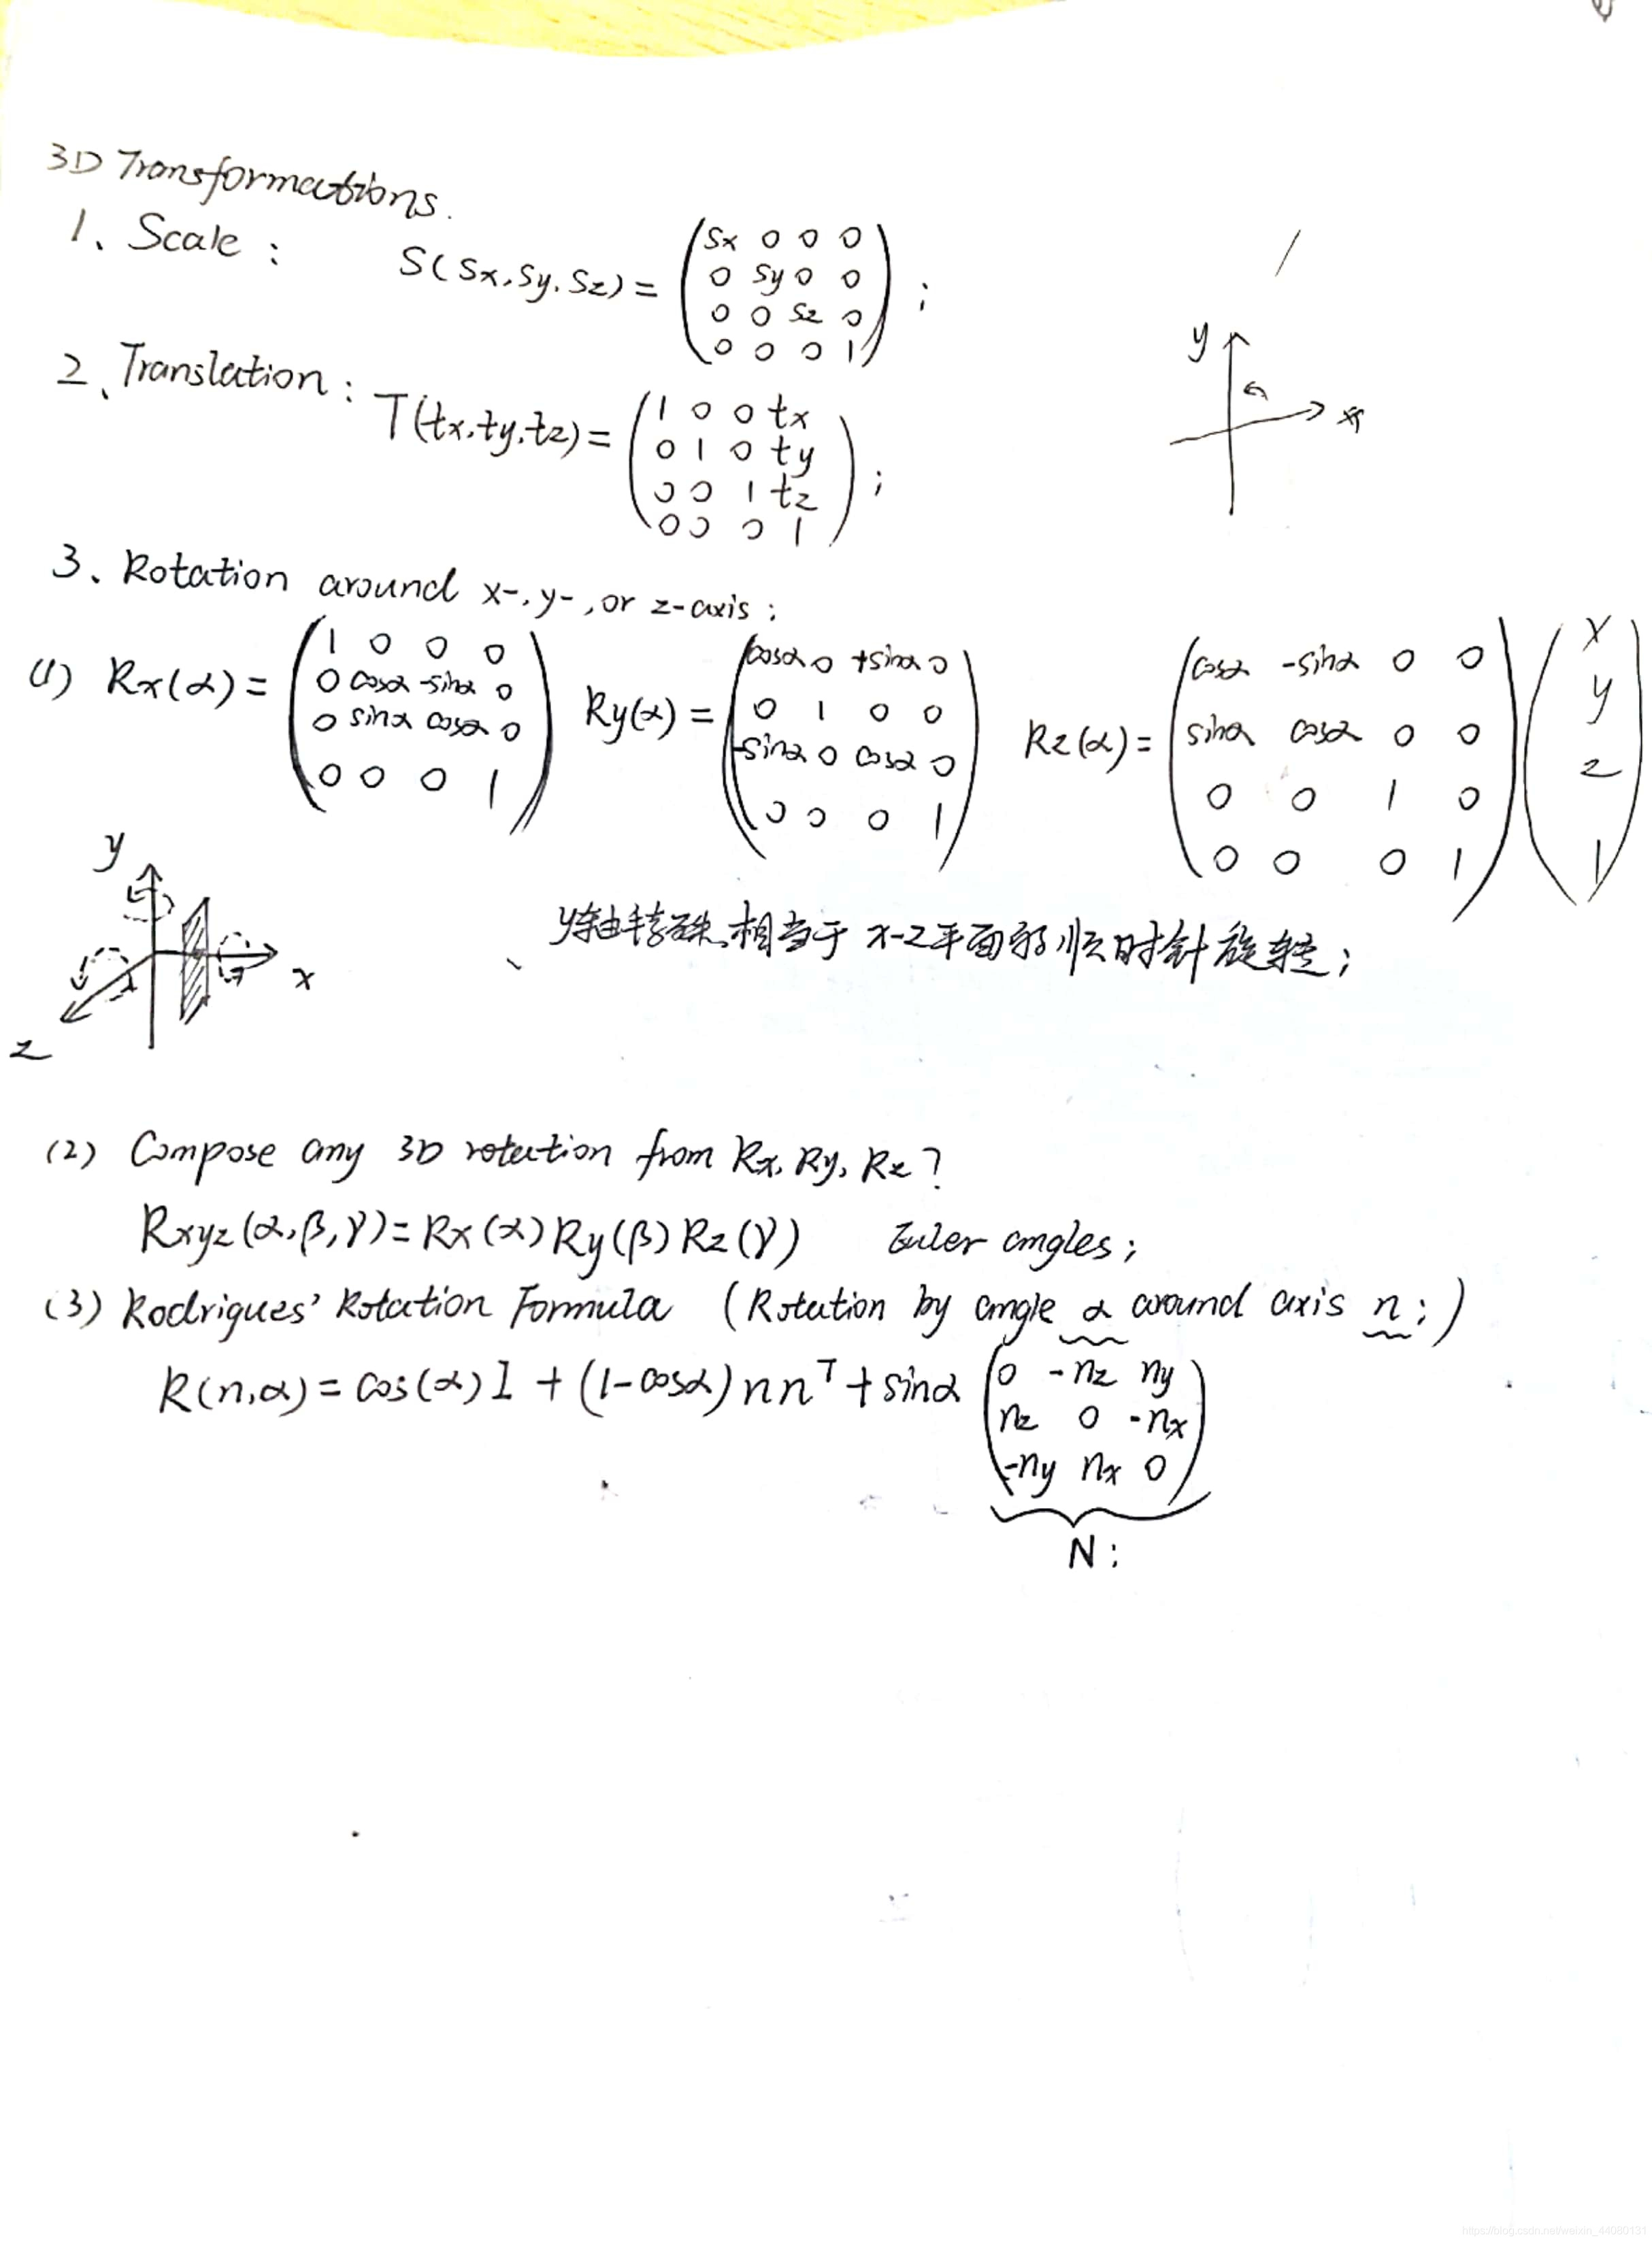 3D Transformations.
1、Scale : S(Sx,Sy,Sz) = (Sx 0 0 0
0 Sy 0 0
0 0 Sz 0
0 0 0 1) ;
2、Translation : T(tx,ty,tz) = (1 0 0 tx
0 1 0 ty
0 0 1 tz
0 0 0 1) ;
y
x
3、Rotation around x-, y-, or z-axis ;
(1) Rx(α) = (1 0 0 0
0 cosα -sinα 0
0 sinα cosα 0
0 0 0 1)
Ry(α) = (cosα 0 +sinα 0
0 1 0 0
-sinα 0 cosα 0
0 0 0 1)
Rz(α) = (cosα -sinα 0 0
sinα cosα 0 0
0 0 1 0
0 0 0 1) (x
y
z
1)
y
x
z
y轴 相当于 x-z平面的顺时针旋转;
(2) Compose any 3D rotation from Rx, Ry, Rz?
Rxyz(α,β,γ) = Rx(α) Ry(β) Rz(γ) Euler angles;
(3) Rodrigues' Rotation Formula (Rotation by angle α around axis n;)
R(n,α) = cos(α) I + (1-cosα) nnᵀ + sinα (0 -nz ny
nz 0 -nx
-ny nx 0)
N :
https://blog.csdn.net/weixin_44080131